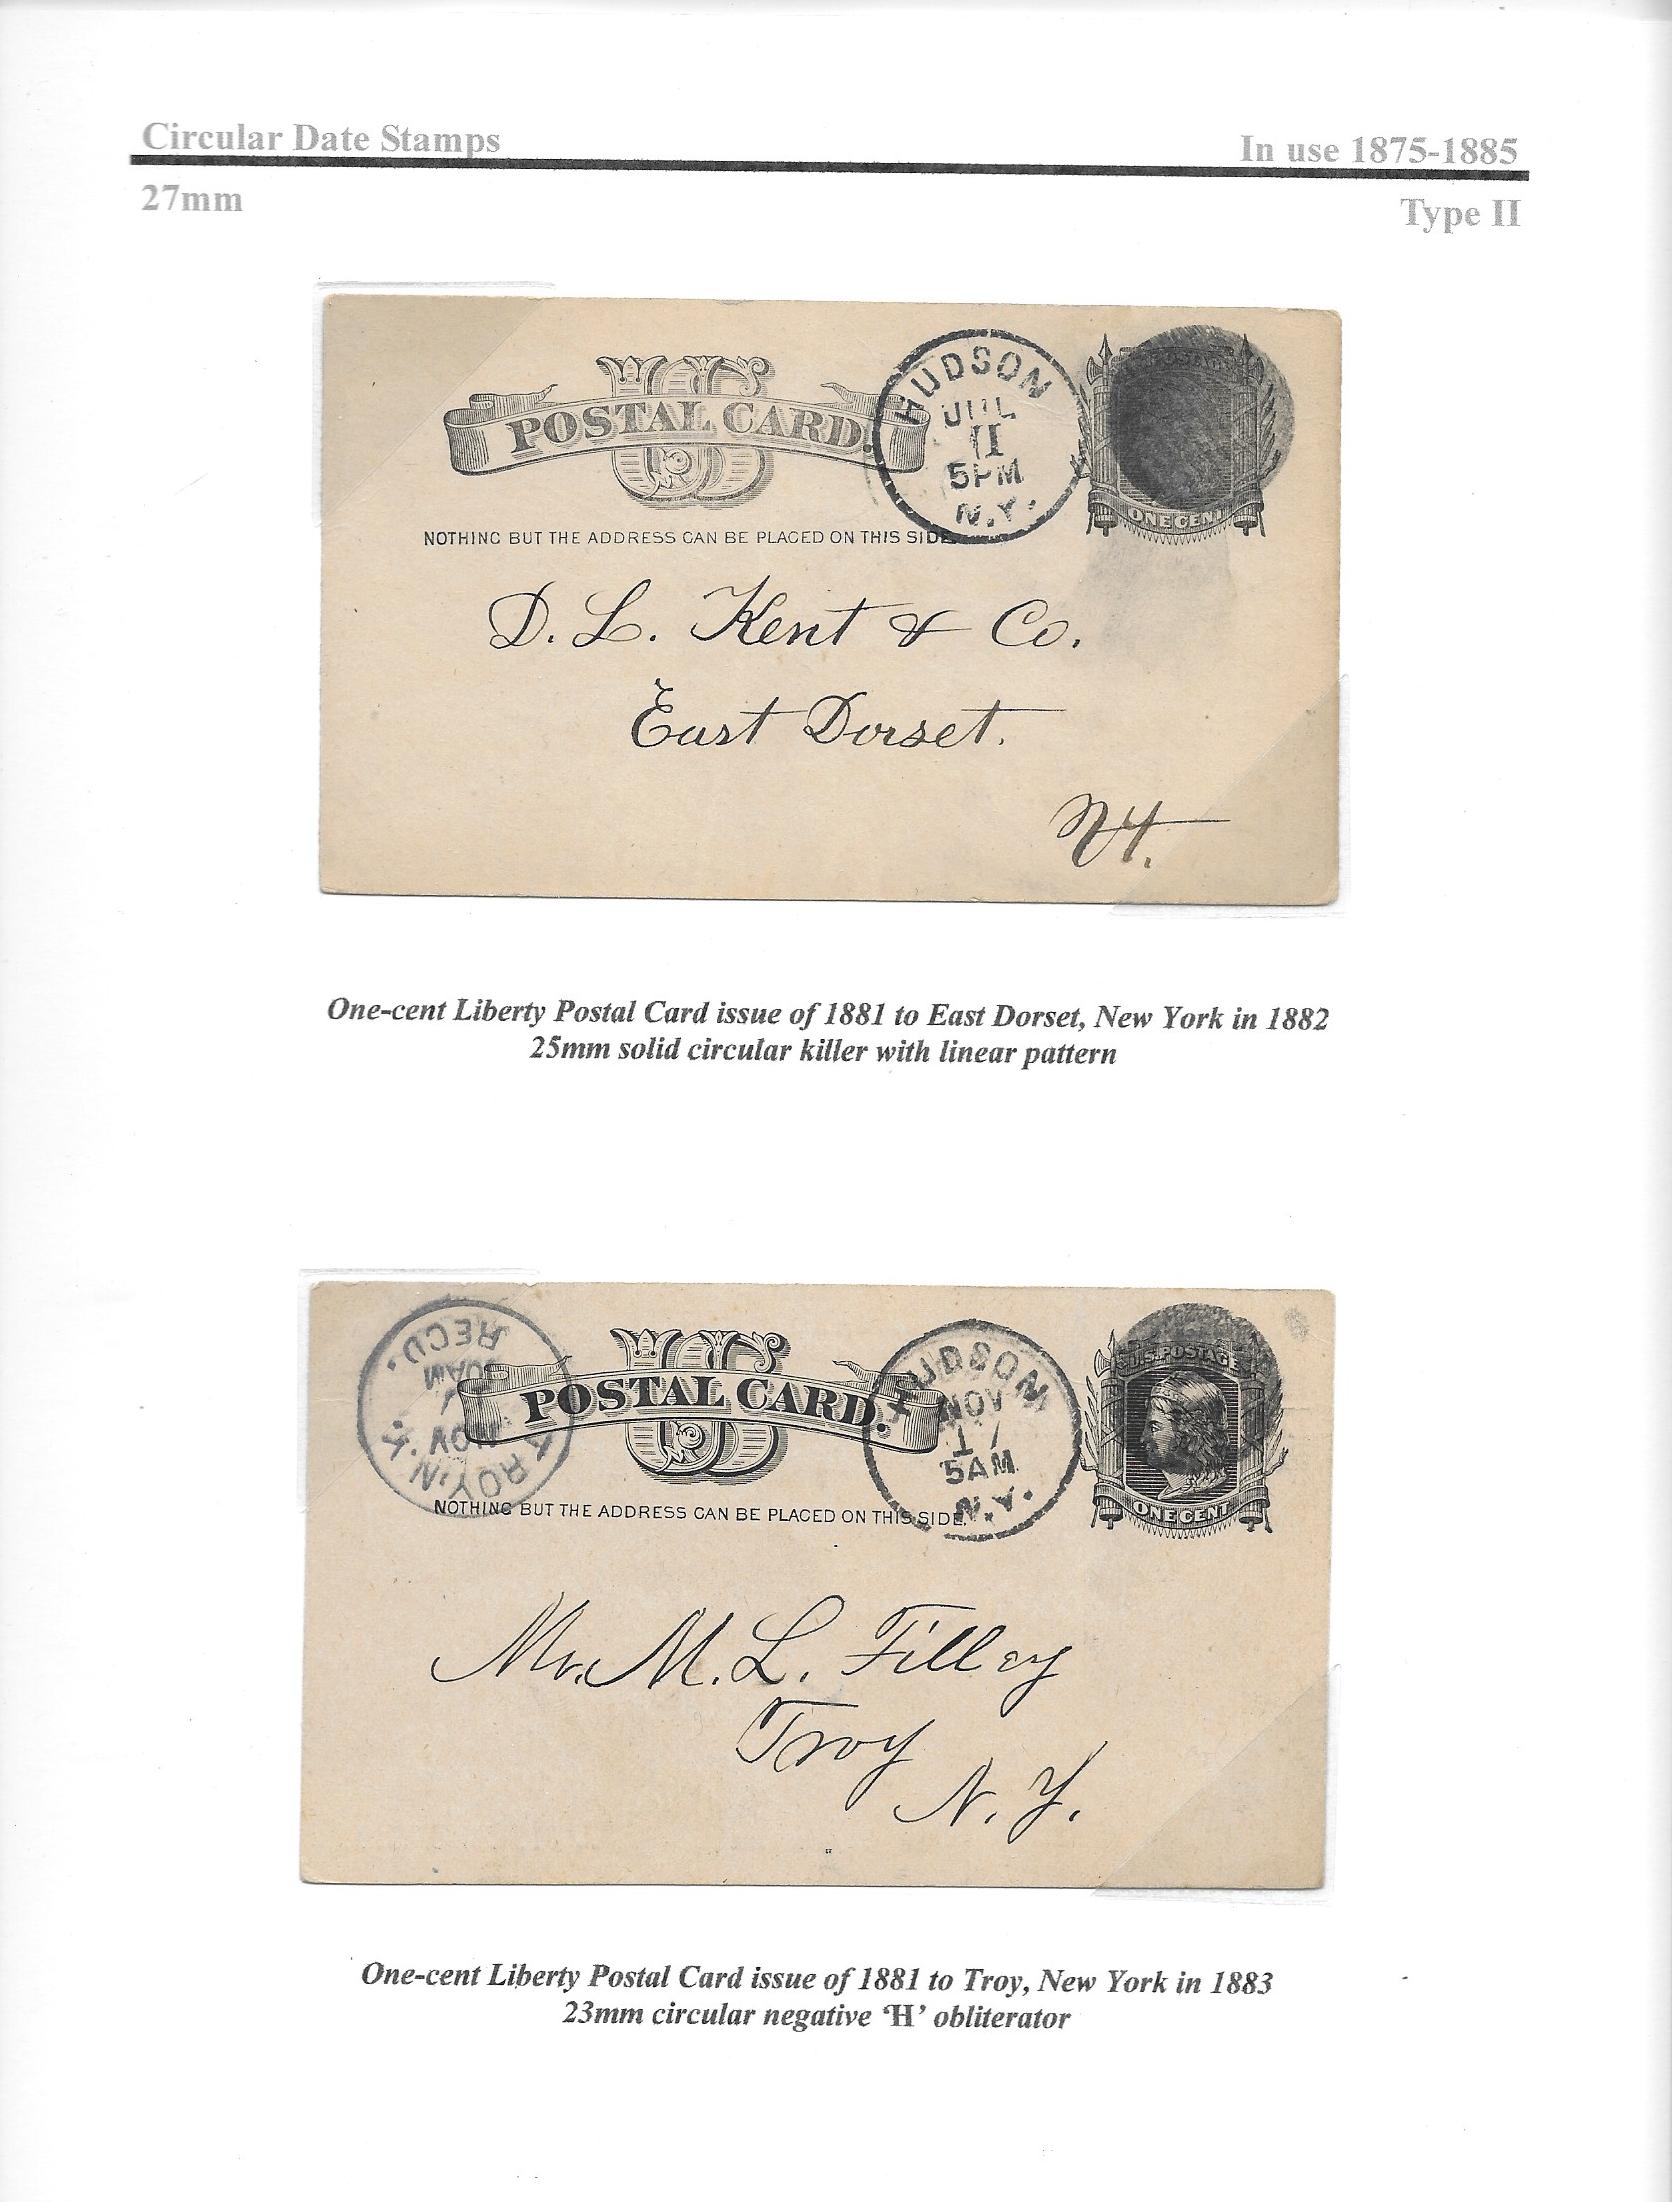 Circular Date Stamps
In use 1875-1885
27mm
Type II
POSTAL CARD.
HUDSON
JUL
11
5PM
N.Y.
U.S. POSTAGE
ONE CENT
NOTHING BUT THE ADDRESS CAN BE PLACED ON THIS SIDE.
D. L. Kent & Co.
East Dorset.
N.Y.
One-cent Liberty Postal Card issue of 1881 to East Dorset, New York in 1882
25mm solid circular killer with linear pattern
TROY, N.Y.
NOV
AM
RECD.
POSTAL CARD.
HUDSON
NOV
17
5AM
N.Y.
U.S. POSTAGE
ONE CENT
NOTHING BUT THE ADDRESS CAN BE PLACED ON THIS SIDE.
Mr. M. L. Filley
Troy
N. Y.
One-cent Liberty Postal Card issue of 1881 to Troy, New York in 1883
23mm circular negative ‘H’ obliterator